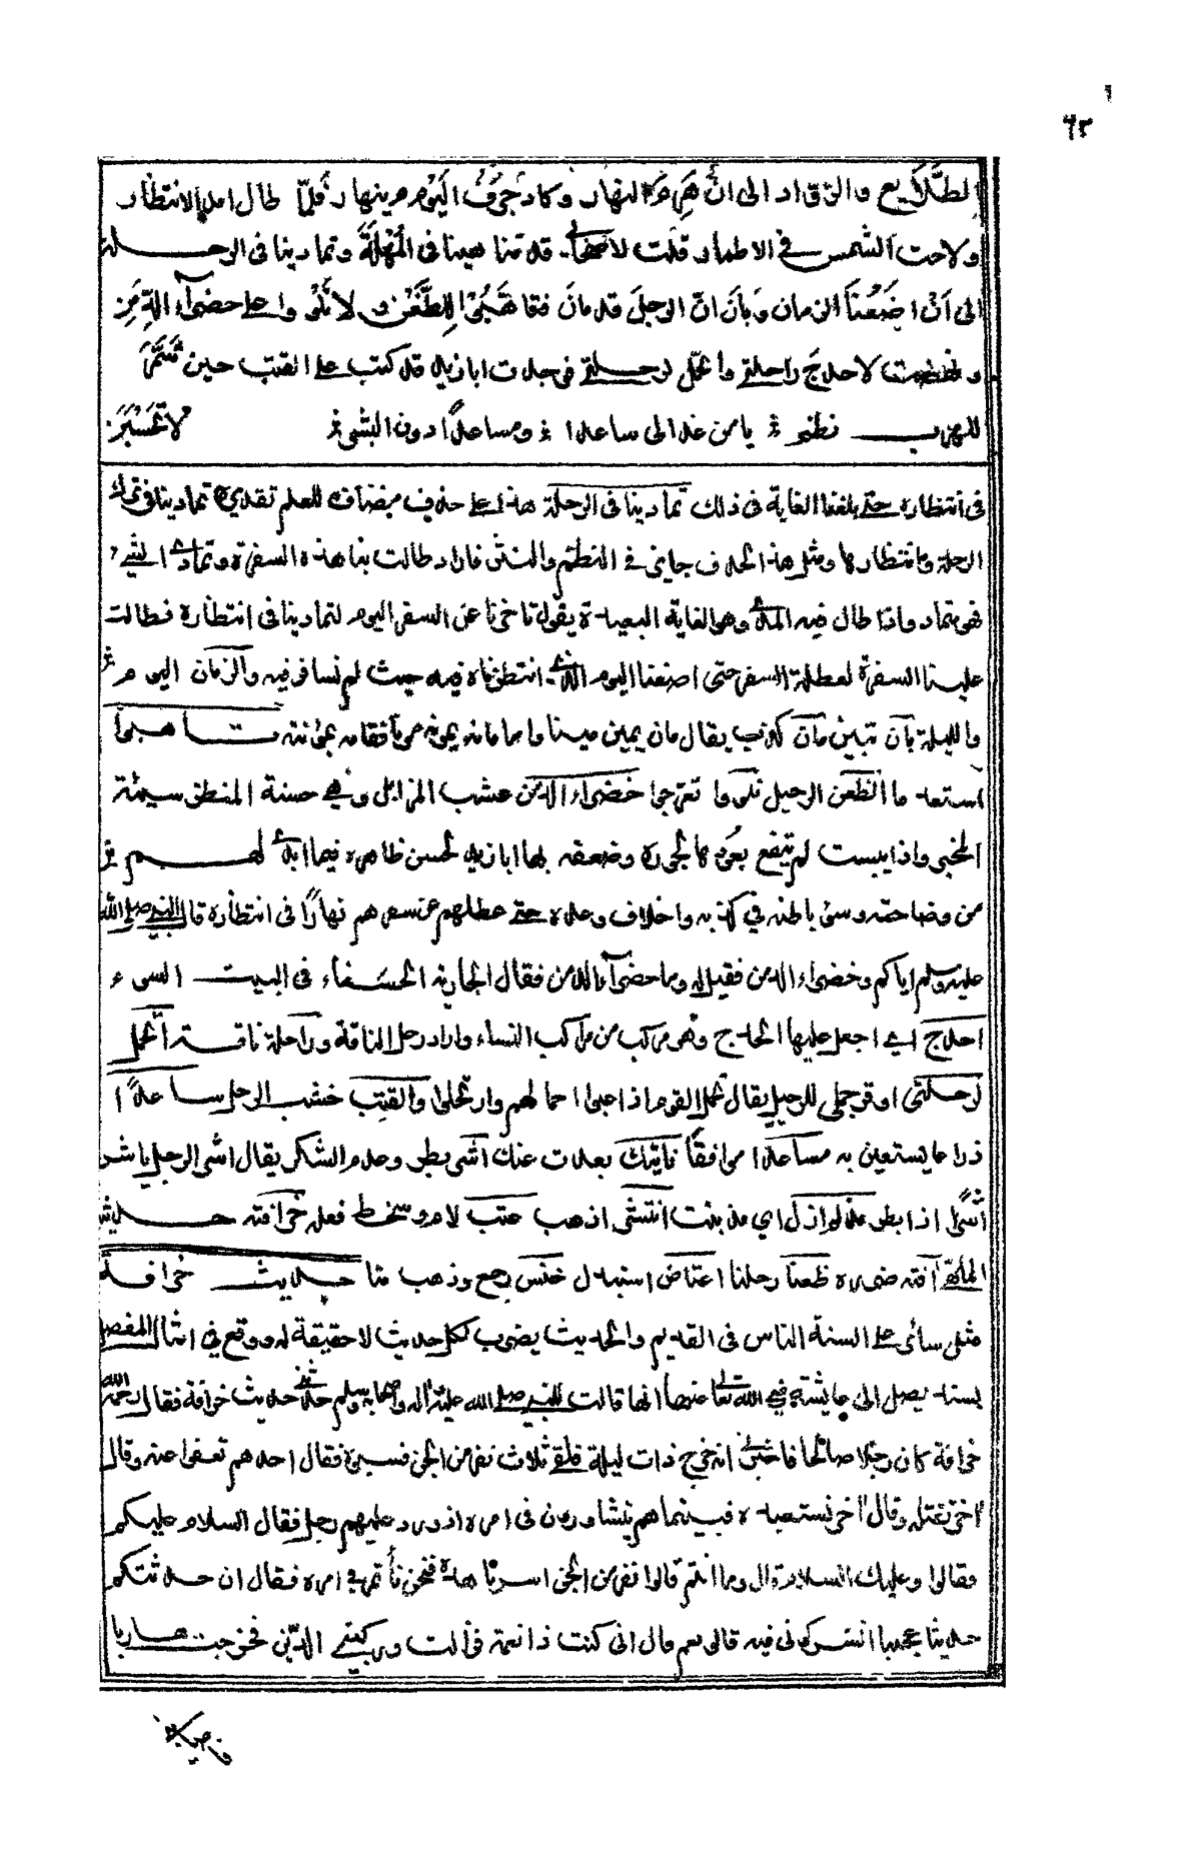 ٦٣
الطَّلَايع والرقاد الى ان هَرِمَ النهار وكاد جُرُفُ اليَوْم ينهار فلمّا طال امد الانتظار
ولاحت الشمس في الاطمار قلت لاصحابي قد تناهينا في المُهْلَة وتمادينا في الرحلة
الى اَنْ اضَعْنا الزمان وبَانَ انّ الرجلَ قد مَانَ فتاهَّبُوْا لِلظَّعَن ولا تَلْووا على خضراء الدِّمَنِ
ونهضت لاحدج راحلتي واتحمّل لرحلتي فوجدت ابا زيد قد كتب على القتب حين شَمَّرَ
للهرب نظم يا من غدا لي ساعدا ومساعداً دون البشر لا تَحْسَبَنْ
في انتظاره حتى بلغنا الغاية في ذلك تمادينا في الرحلة هذا على حذف مضاف للعلم تقديره تمادينا في ترك
الرحلة وانتظارها ومثل هذا الحذف جايز في النظم والنثر فاراد طالت بنا هذه السفرة وتمادى الشيء
فهو متماد واذا طال فيه المدى وهو الغاية البعيدة يقول تاخرنا عن السفر اليوم لتمادينا في انتظاره فطالت
علينا السفرة لعطلة السفر حتى اضعنا اليوم الذي انتظرناه فيه حيث لم نسافر فيه والزمان اليوم
والليلة بان تبين مان كذب يقال مان يمين مينا واما مانه يمونه مونا فقام بمؤنته تاهبوا
استعدوا الظعن الرحيل تلووا تعرجوا خضراء الدمن عشب المزابل وهي حسنة المنظر سيئة
المخبر واذا يبست لم ينتفع بعودها وصفه بها ابا زيد لحسن ظاهره فيما ابدى لهم
من فصاحته وسوء باطنه في كذبه واخلاف وعده حتى عطلهم عن سفرهم نهاراً في انتظاره قال النبي صلى الله
عليه وسلم اياكم وخضراء الدمن فقيل له وما خضراء الدمن فقال الجارية الحسناء في البيت السوء
احدج اي اجعل عليها الحدج وهو مركب من مراكب النساء واراد رحل الناقة وراحلة ناقة اتحمل
لرحلتي اوقر حملي للرحيل يقال تحمل القوم اذا عبوا احمالهم وارتحلوا والقتب خشب الرحل ساعداً
ذراعا يستعين به مساعدا موافقاً نايتك بعدت عنك اشر بطر وعدم الشكر يقال اشر الرجل ياشر
أشراً اذا بطر
المأته آفته ضرره ظعنا رحلنا اعتاض استبدل خنس رجع وذهب منا حديث خرافة
مثل سائر على السنة الناس في القديم والحديث يضرب لكل حديث لا حقيقة له ووقع في امثال المفضل
بسند يصل الى عايشة رضي الله تعالى عنها انها قالت للنبي صلى الله عليه وآله واصحابه وسلم حدثني حديث خرافة فقال رحم الله
خرافة كان رجلا صالحا فاخبرني انه خرج ذات ليلة فلقي ثلاث نفر من الجن فسبوه فقال احدهم نعفوا عنه وقال
آخر نقتله وقال آخر نستعبده فبينما هم يتشاورون في امره اذ ورد عليهم رجل فقال السلام عليكم
فقالوا وعليك السلام قال وما انتم قالوا نفر من الجن اسرنا هذا فنحن نأتمر في امره فقال ان حدثتكم
حديثا عجيبا اتشركوني فيه قالو نعم قال اني كنت ذا نعمة فزالت وركبني الدّين فخرجت هاربا